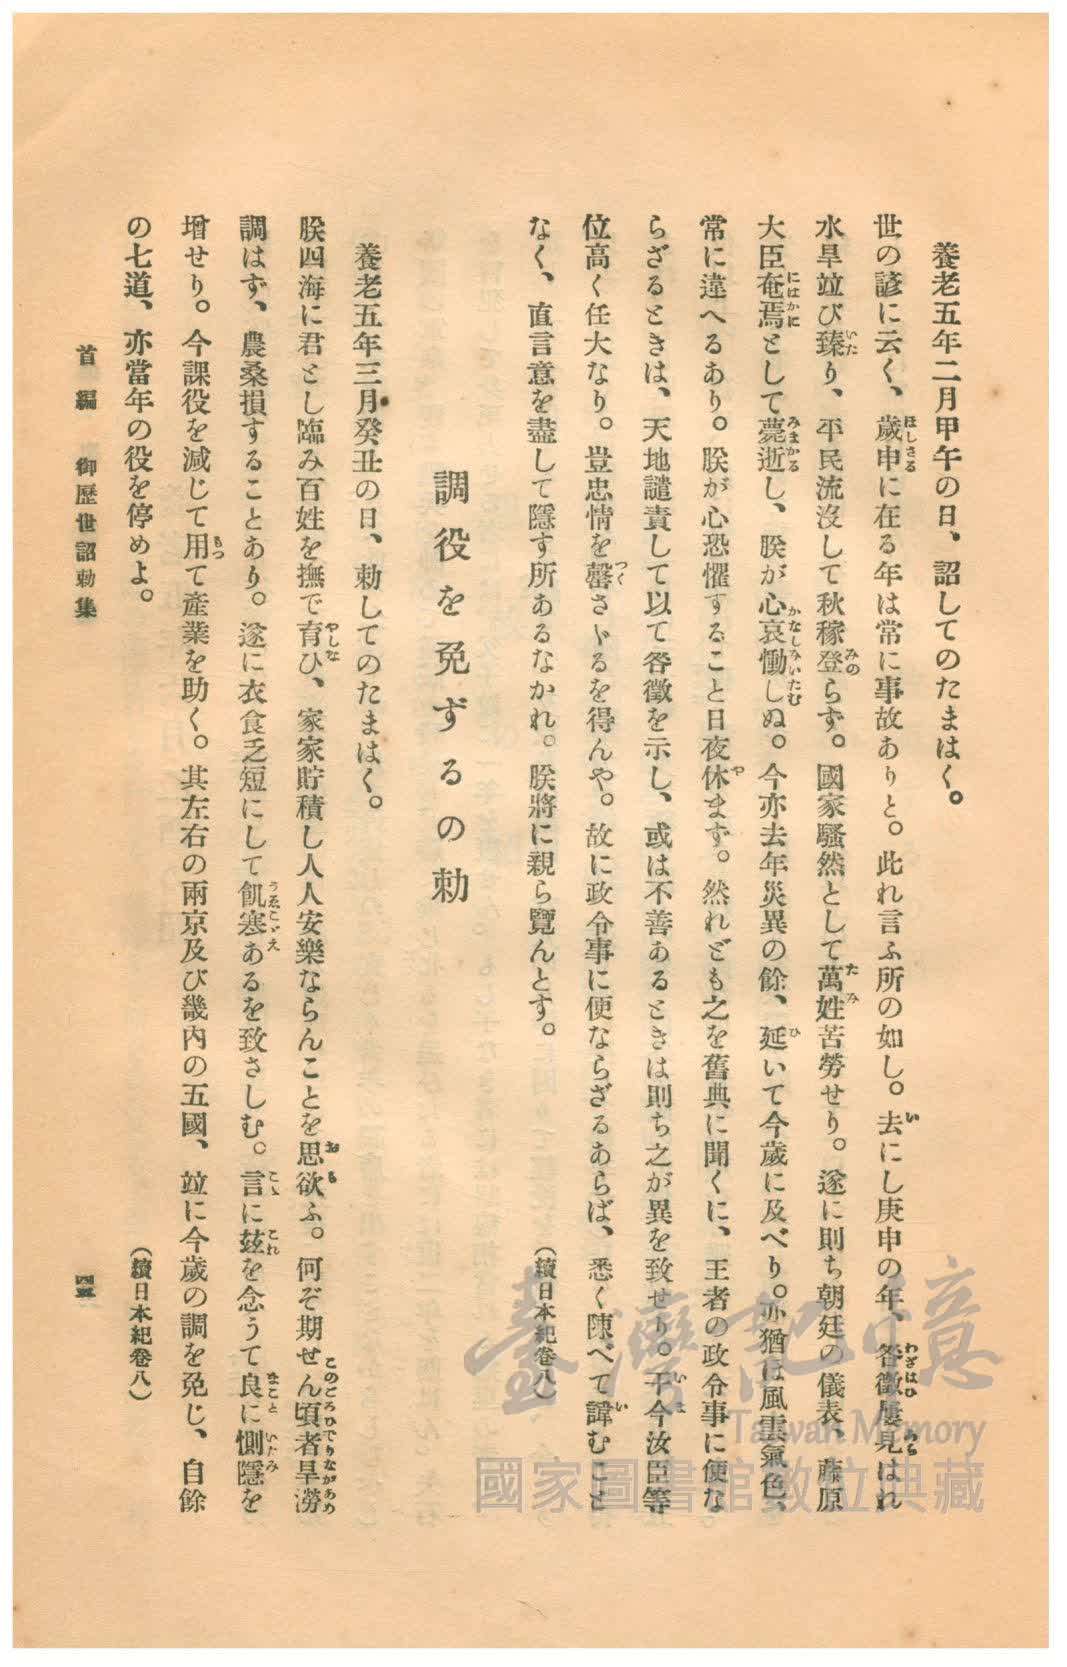 養老五年二月甲午の日、詔してのたまはく。
世の諺に云く、歲申に在る年は常に事故ありと。此れ言ふ所の如し。去にし庚申の年、咎徵屢見はれ
水旱竝び臻り、平民流沒して秋稼登らず。國家騷然として萬姓苦勞せり。遂に則ち朝廷の儀表、藤原
大臣奄焉として薨逝し、朕が心哀慟しぬ。今亦去年災異の餘、延いて今歲に及べり。亦猶ほ風雲氣色、
常に違へるあり。朕が心恐懼すること日夜休まず。然れども之を舊典に聞くに、王者の政令事に便な
らざるときは、天地譴責して以て咎徵を示し、或は不善あるときは則ち之が異を致せり。于今汝臣等
位高く任大なり。豈忠情を罄さゞるを得んや。故に政令事に便ならざるあらば、悉く陳べて諱むこと
なく、直言意を盡して隱す所あるなかれ。朕將に親ら覽んとす。
(續日本紀卷八)
調役を免ずるの勅
養老五年三月癸丑の日、勅してのたまはく。
朕四海に君とし臨み百姓を撫で育ひ、家家貯積し人人安樂ならんことを思欲ふ。何ぞ期せん頃者旱澇
調はず、農桑損することあり。遂に衣食乏短にして飢寒あるを致さしむ。言に玆を念うて良に惻隱を
增せり。今課役を減じて用て產業を助く。其左右の兩京及び畿內の五國、竝に今歲の調を免じ、自餘
の七道、亦當年の役を停めよ。
(續日本紀卷八)
首編 御歷世詔勅集
四五
臺灣記憶
Taiwan Memory
國家圖書館數位典藏